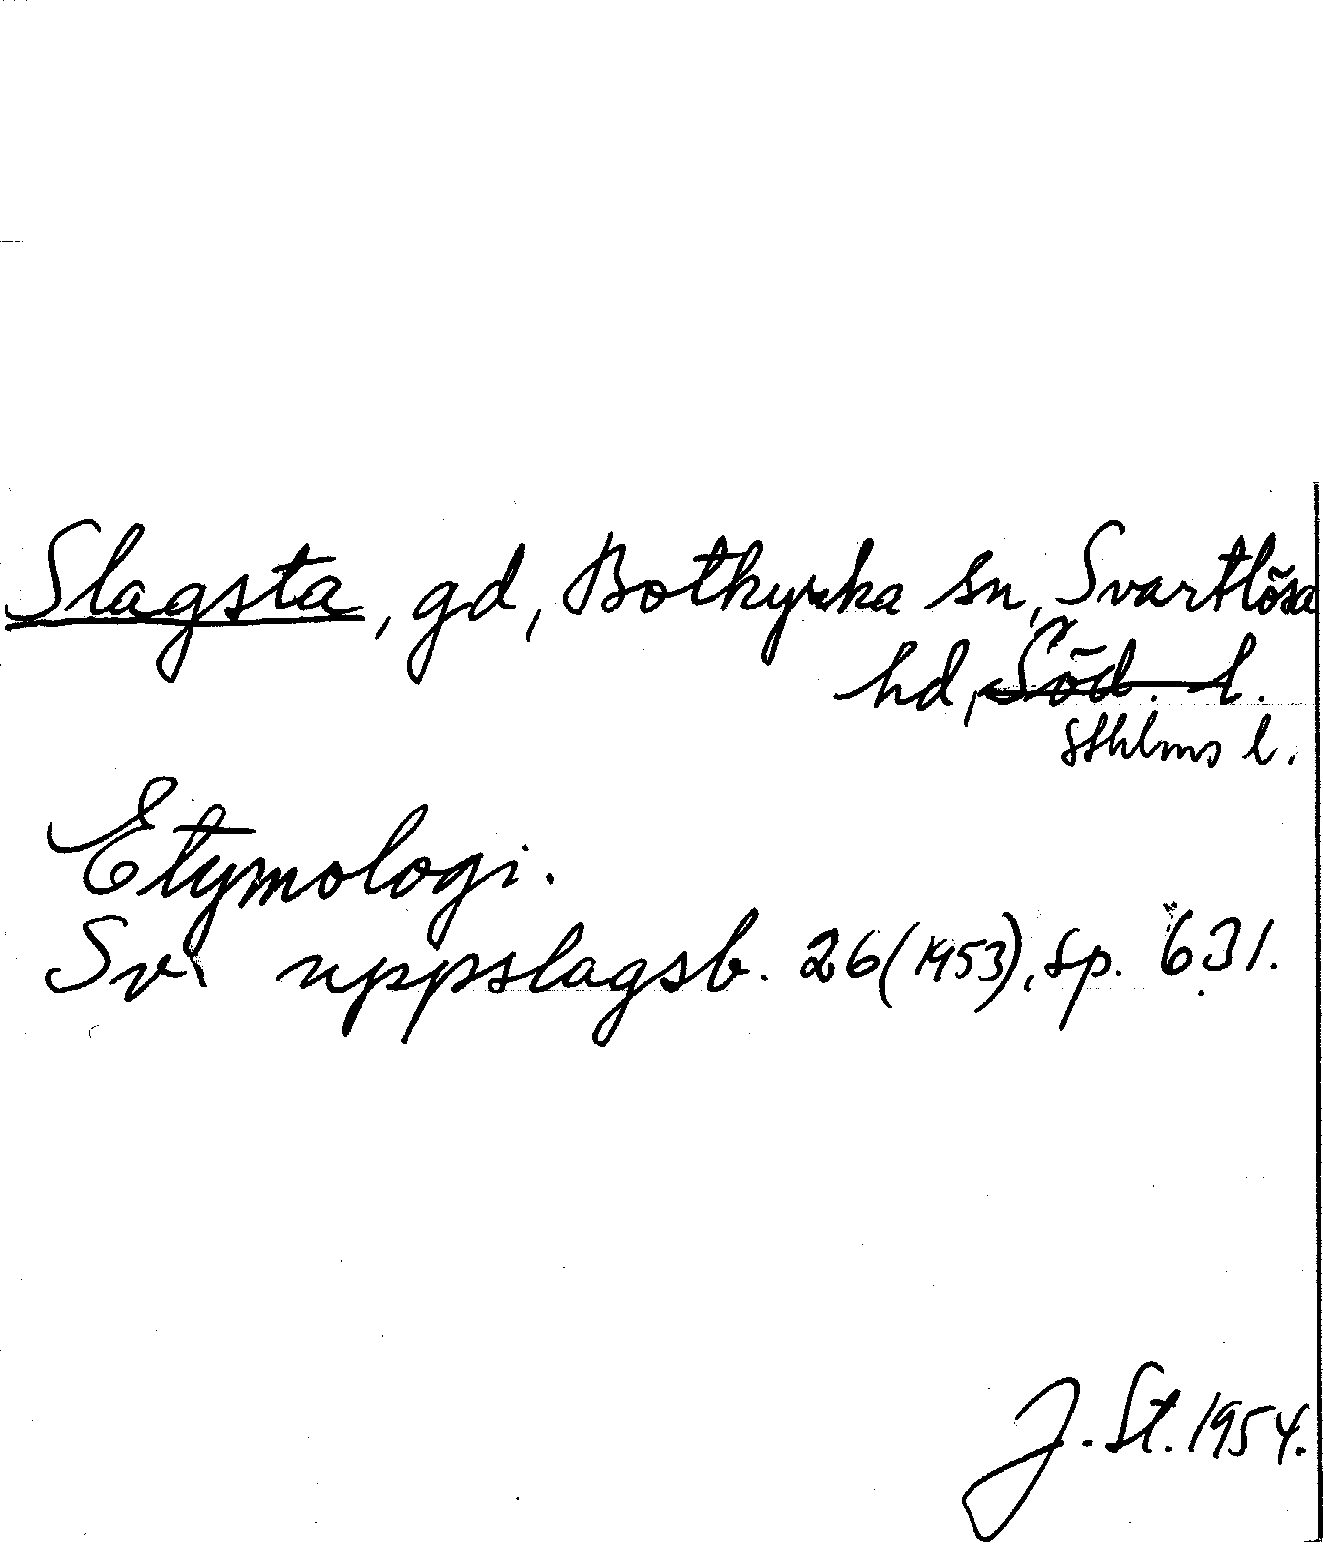 Slagsta, gd, Botkyrka sn, Svartlösa
hd, Söd. l.
Sthlms l.
Etymologi.
Sv. uppslagsb. 26 (1953), sp. 631.
J. St. 1954.